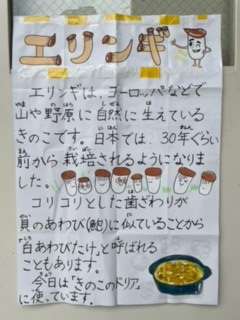 エリンギ
エリンギは、ヨーロッパなどで
山や野原に自然に生えている
きのこです。日本では、30年ぐらい
前から栽培されるようになりまし
た。
コリコリとした歯ざわりが
貝のあわび(鮑)に似ていることから
白あわびたけ〟と呼ばれる
こともあります。
今日は「きのこのドリア」
に使っています。